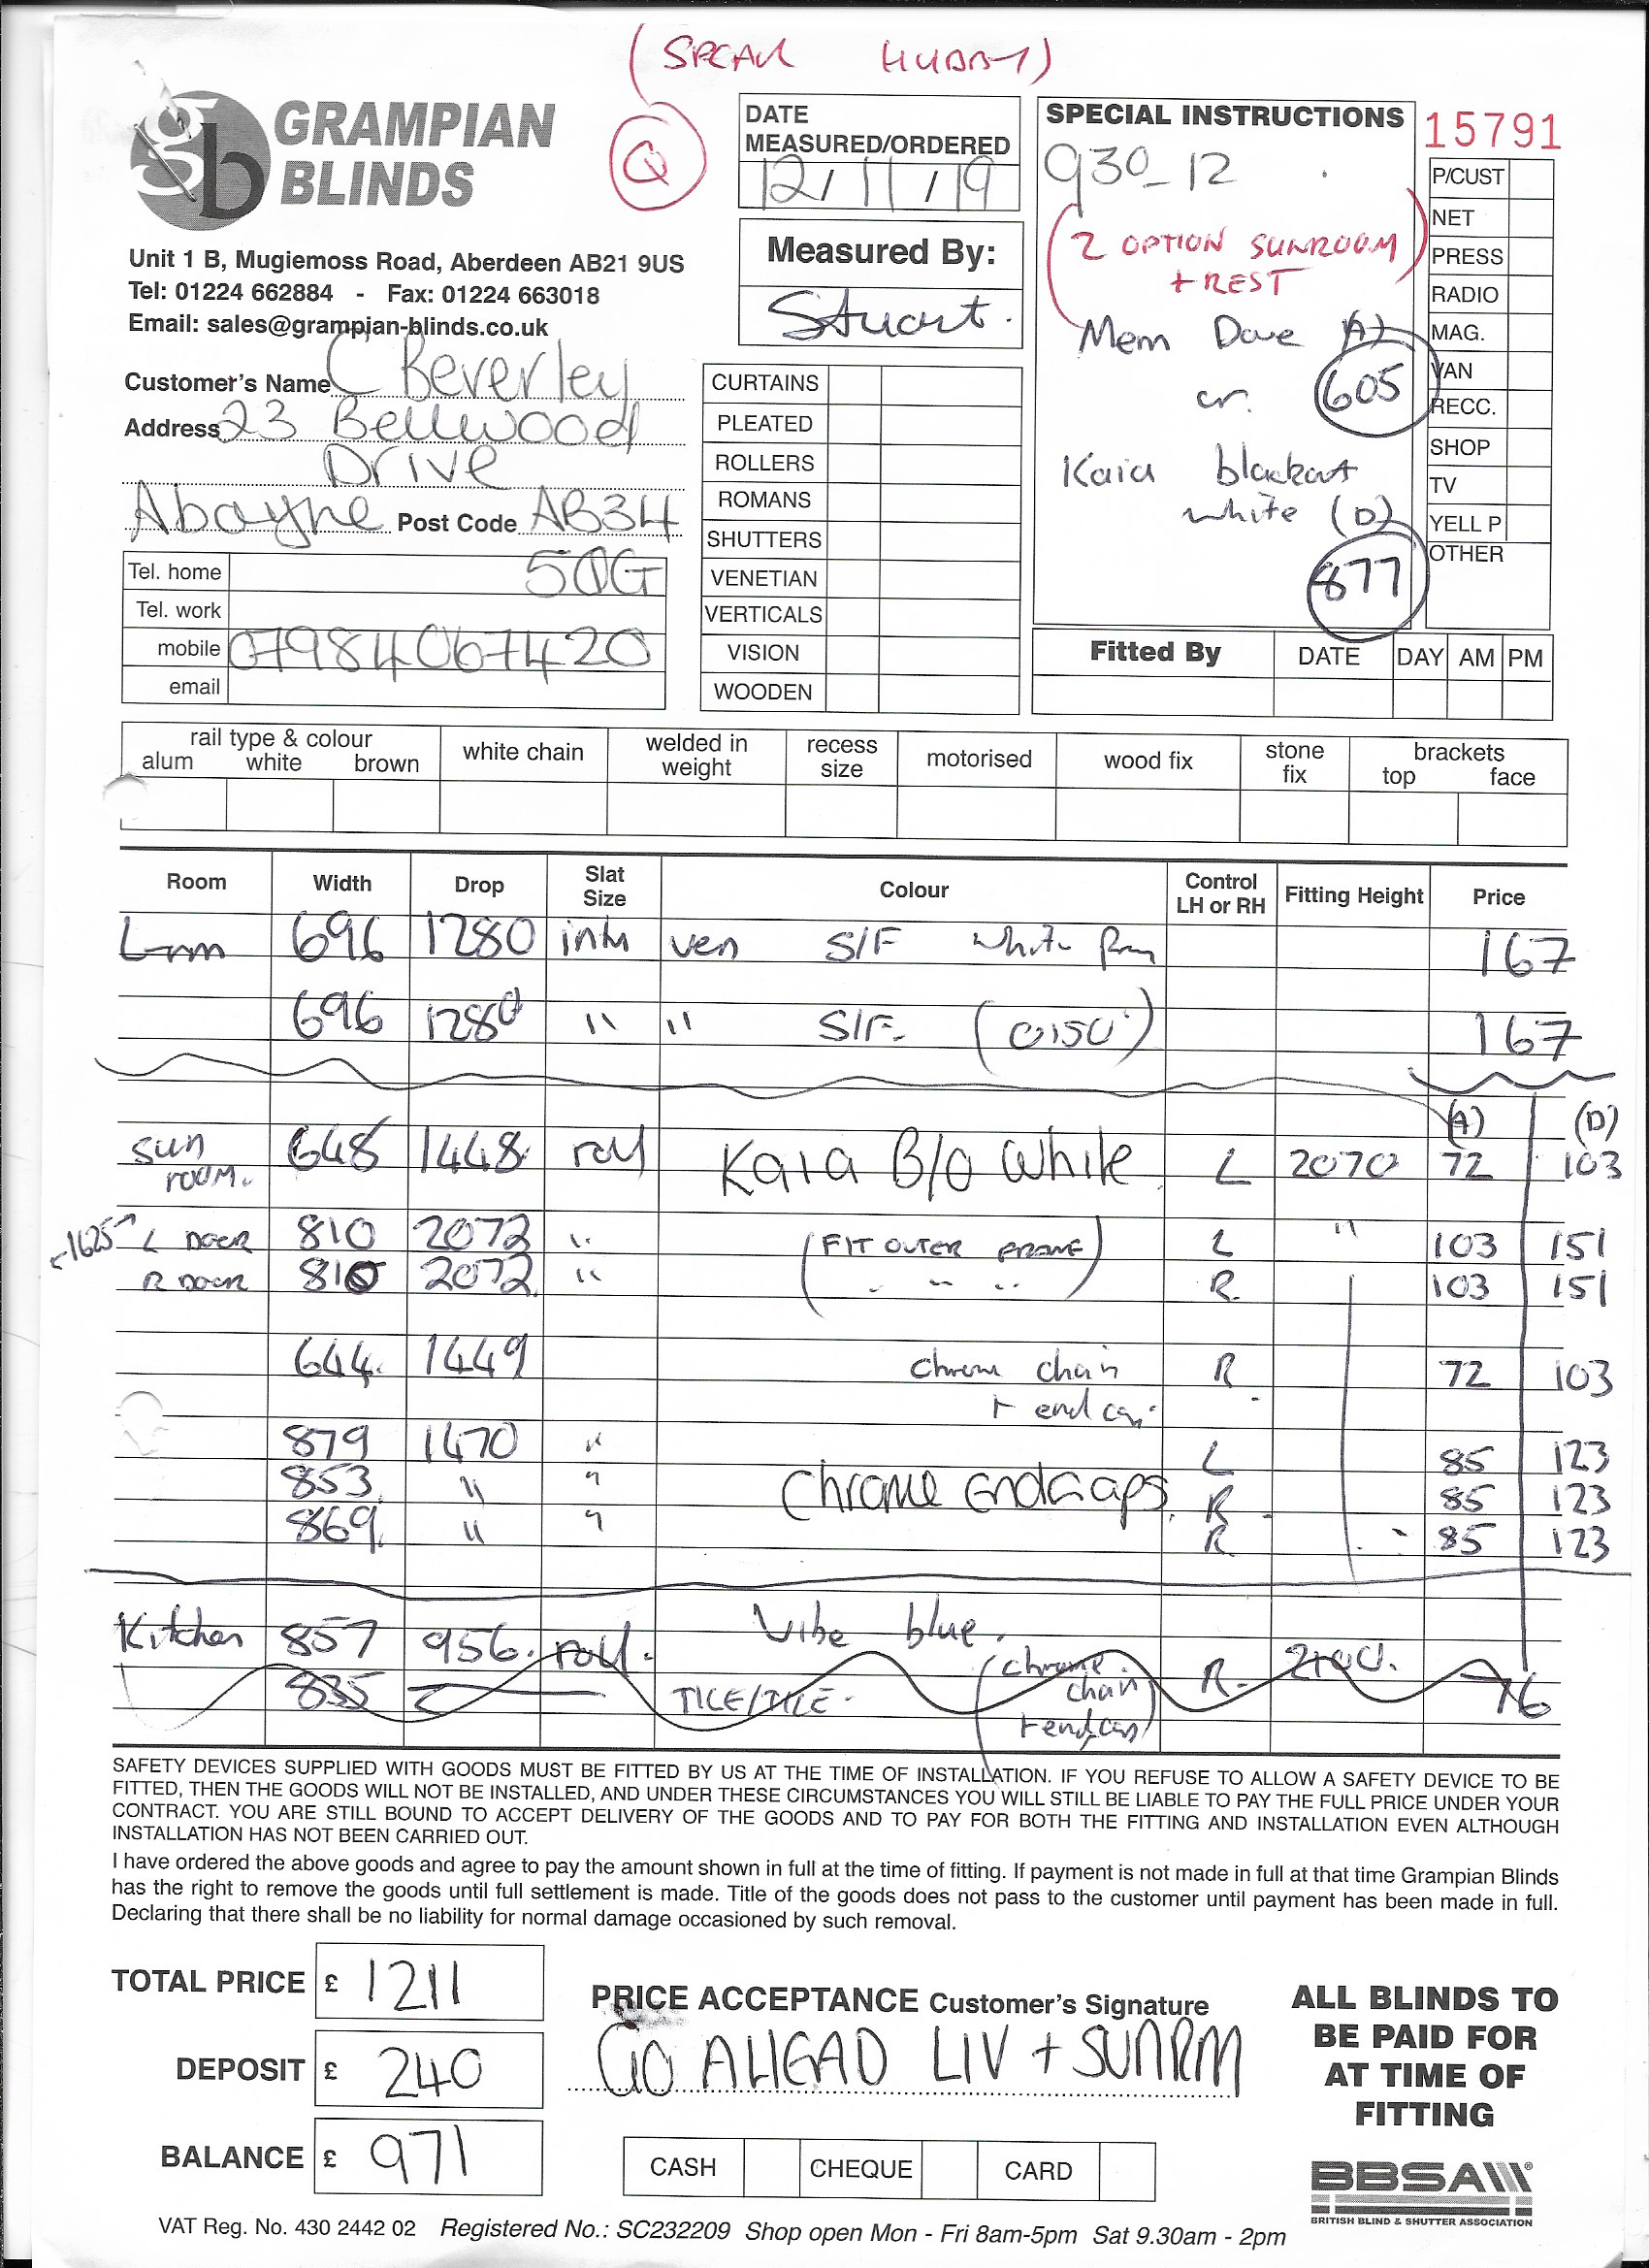 (SPEAK HUBBY)
Q
GRAMPIAN
BLINDS
Unit 1 B, Mugiemoss Road, Aberdeen AB21 9US
Tel: 01224 662884 - Fax: 01224 663018
Email: sales@grampian-blinds.co.uk
Customer's Name C Beverley
Address 23 Bellwood
Drive
Aboyne Post Code AB34
5QG
Tel. home
Tel. work
mobile 07984067420
email
DATE
MEASURED/ORDERED
12/11/19
Measured By:
Stuart.
CURTAINS
PLEATED
ROLLERS
ROMANS
SHUTTERS
VENETIAN
VERTICALS
VISION
WOODEN
SPECIAL INSTRUCTIONS
930-12
(2 OPTION SUNROOM
+ REST)
Mem Dove (A)
or 605
Kaia blackout
white (D)
877
15791
P/CUST
NET
PRESS
RADIO
MAG.
VAN
RECC.
SHOP
TV
YELL P
OTHER
Fitted By DATE DAY AM PM
rail type & colour
alum white brown
white chain
welded in
weight
recess
size
motorised
wood fix
stone
fix
brackets
top face
Room Width Drop Slat Size Colour Control LH or RH Fitting Height Price
696 1280 intu ven S/F white 167
696 1280 " " S/F. (0150) 167
(A) (D)
Sun room. 648 1448 roll Kaia B/O White L 2070 72 103
1625 L DOOR 810 2072 " (FIT OUTER FRAME) L " 103 151
R DOOR 810 2072 " " " " R. 103 151
644 1449 Chrome chain R 72 103
+ end cap
879 1470 " L 85 123
853 " " Chrome Endcaps. R 85 123
869 " " R 85 123
Kitchen 857 956. roll. Vibe blue. R. 2100. 76
835 TILE/TILE. (chrome chain + endcap)
SAFETY DEVICES SUPPLIED WITH GOODS MUST BE FITTED BY US AT THE TIME OF INSTALLATION. IF YOU REFUSE TO ALLOW A SAFETY DEVICE TO BE
FITTED, THEN THE GOODS WILL NOT BE INSTALLED, AND UNDER THESE CIRCUMSTANCES YOU WILL STILL BE LIABLE TO PAY THE FULL PRICE UNDER YOUR
CONTRACT. YOU ARE STILL BOUND TO ACCEPT DELIVERY OF THE GOODS AND TO PAY FOR BOTH THE FITTING AND INSTALLATION EVEN ALTHOUGH
INSTALLATION HAS NOT BEEN CARRIED OUT.
I have ordered the above goods and agree to pay the amount shown in full at the time of fitting. If payment is not made in full at that time Grampian Blinds
has the right to remove the goods until full settlement is made. Title of the goods does not pass to the customer until payment has been made in full.
Declaring that there shall be no liability for normal damage occasioned by such removal.
TOTAL PRICE £ 1211
DEPOSIT £ 240
BALANCE £ 971
PRICE ACCEPTANCE Customer's Signature
GO AHEAD LIV + SUNRM
CASH CHEQUE CARD
ALL BLINDS TO
BE PAID FOR
AT TIME OF
FITTING
BBSA
BRITISH BLIND & SHUTTER ASSOCIATION
VAT Reg. No. 430 2442 02 Registered No.: SC232209 Shop open Mon - Fri 8am-5pm Sat 9.30am - 2pm